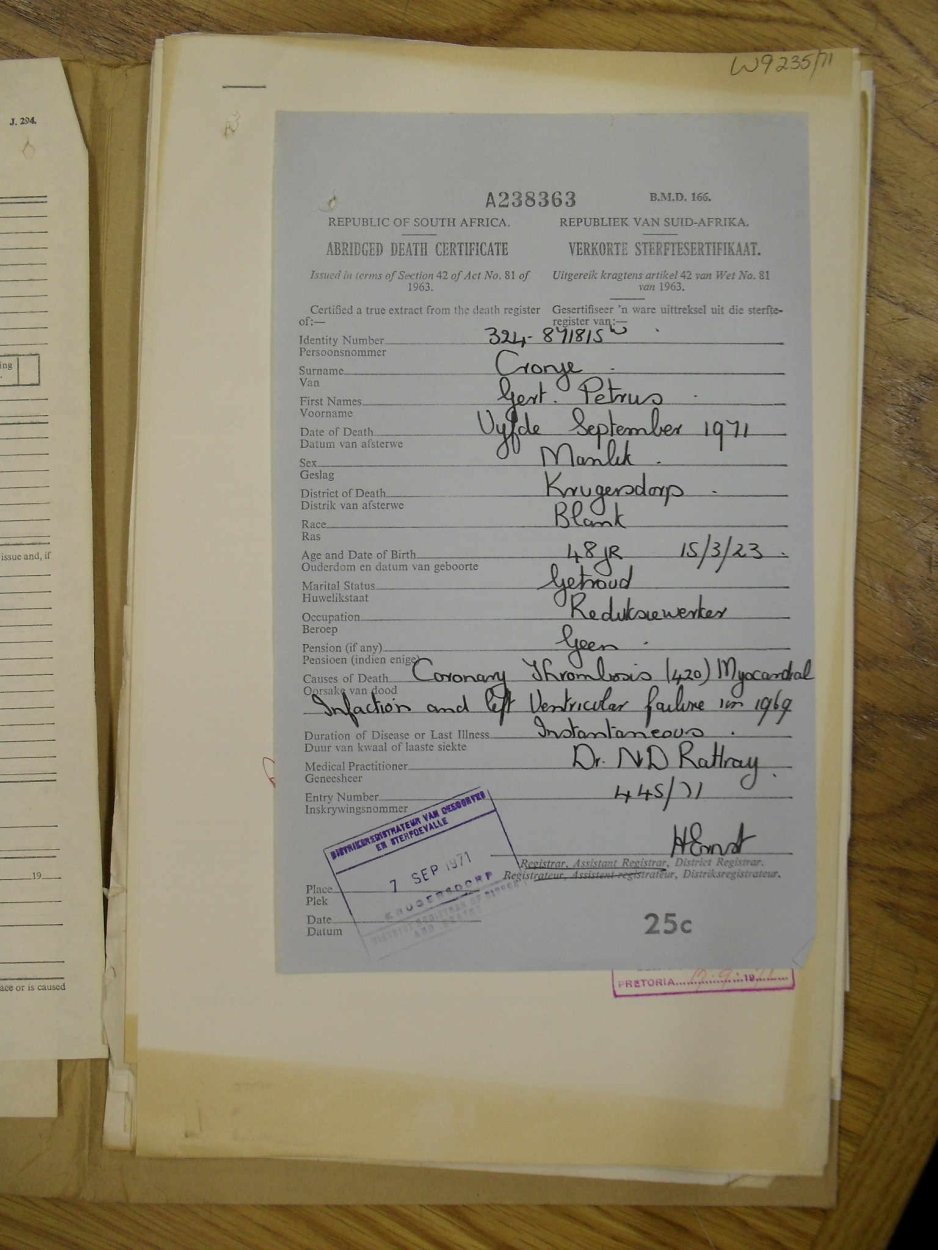 W9235/71
J. 294.
A238363
B.M.D. 166.
REPUBLIC OF SOUTH AFRICA.
REPUBLIEK VAN SUID-AFRIKA.
ABRIDGED DEATH CERTIFICATE
VERKORTE STERFTESERTIFIKAAT.
Issued in terms of Section 42 of Act No. 81 of
1963.
Uitgereik kragtens artikel 42 van Wet No. 81
van 1963.
Certified a true extract from the death register
of:—
Gesertifiseer 'n ware uittreksel uit die sterfte-
register van:—
Identity Number 324-871815 W
Persoonsnommer
Surname Cronje
Van
First Names Gert. Petrus
Voorname
Date of Death Vyfde September 1971
Datum van afsterwe
Sex Manlik
Geslag
District of Death Krugersdorp
Distrik van afsterwe
Race Blank
Ras
Age and Date of Birth 48 JR 15/3/23
Ouderdom en datum van geboorte
Marital Status Getroud
Huwelikstaat
Occupation Reduksiewerker
Beroep
Pension (if any) Geen
Pensioen (indien enige)
Causes of Death Coronary Thrombosis (420) Myocardial
Oorsake van dood
Infaction and left Ventricular failure in 1969
Duration of Disease or Last Illness Instantaneous
Duur van kwaal of laaste siekte
Medical Practitioner Dr. ND Rattray
Geneesheer
Entry Number 445/71
Inskrywingsnommer
DISTRIKSREGISTRATEUR VAN GEBOORTES
EN STERFGEVALLE
7 SEP 1971
KRUGERSDORP
DISTRICT REGISTRAR OF BIRTHS
AND DEATHS
HErnst
Registrar, Assistant Registrar, District Registrar.
Registrateur, Assistent-registrateur, Distriksregistrateur.
Place
Plek
Date
Datum
25c
PRETORIA 19
ing
issue and, if
19
ace or is caused